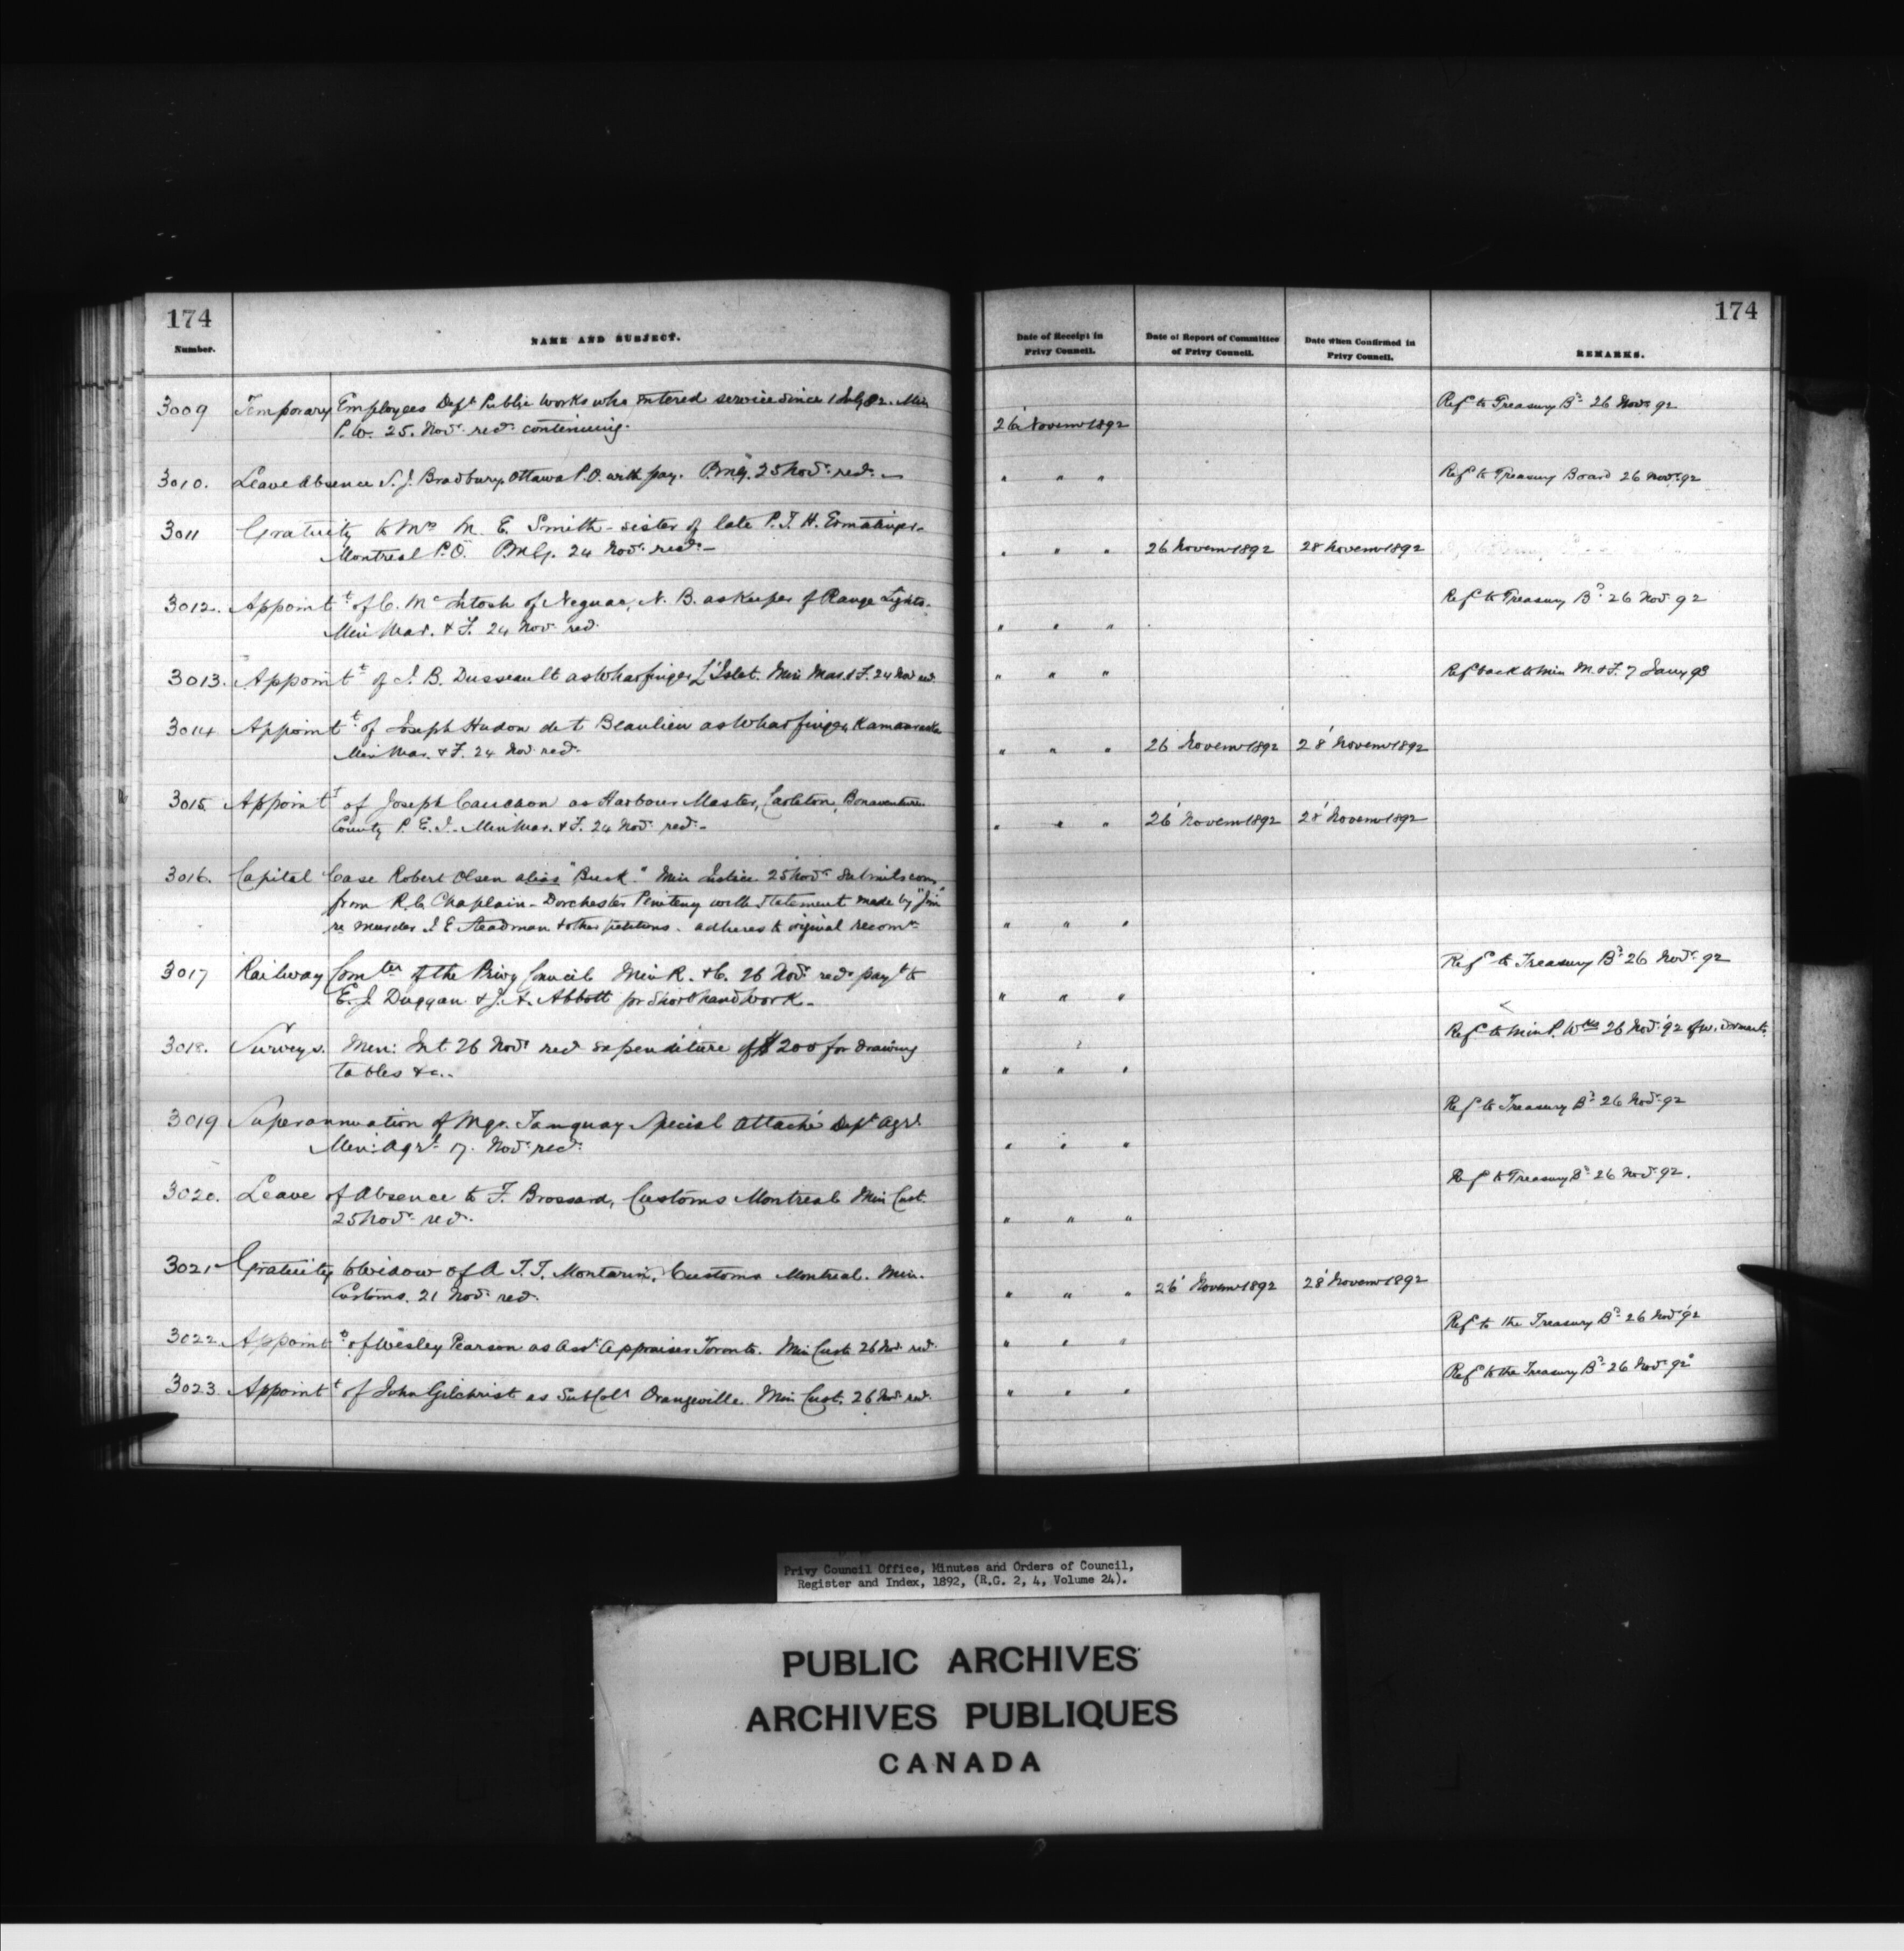 174
Number.
NAME AND SUBJECT.
Date of Receipt in Privy Council.
Date of Report of Committee of Privy Council.
Date when Confirmed in Privy Council.
REMARKS.
174
3009 Temporary Employees Dept Public Works who entered service since 1 July 82. Min
P.W. 25. Novr. recd. continuing. 26 Novemr 1892 Refd to Treasury Bd. 26 Novr 92
3010. Leave Absence S. J. Bradbury Ottawa P.O. with pay. P.M.G. 25 Novr. recd. " " " Refd to Treasury Board 26 Novr. 92
3011 Gratuity to Mrs M. E. Smith - sister of late P. T. H. Ermatinger.
Montreal P.O. P.M.G. 24 Novr. recd. " " " 26 Novemr 1892 28 Novemr 1892
3012. Appointt. of C. McIntosh of Neguac, N. B. as Keeper of Range Lights.
Min Mar. & F. 24 Novr. recd. " " " Refd to Treasury Bd. 26 Novr 92
3013. Appointt of J. B. Dusseault as Wharfinger L'Islet. Min Mar. & F. 24 Nov recd. " " " Refd back to Min M. & F. 7 Jany 93
3014 Appointt. of Joseph Hudon dit Beaulieu as Wharfinger, Kamouraska
Min Mar. & F. 24 Nov recd. " " " 26 Novemr 1892 28 Novemr 1892
3015. Appointt of Joseph Cauchon as Harbour Master, Carleton, Bonaventure
County P. E. I. Min Mar. & F. 24 Novr. recd. " " " 26 Novemr 1892 28 Novemr 1892
3016. Capital Case Robert Olsen alias "Buck." Min Justice 25 Novr Submits com
from R.C. Chaplain - Dorchester Penitenty with Statement made by "Jim"
re murder J. E. Steadman & other petitions. adheres to original recomn " " "
3017 Railway Comtee of the Privy Council Min R. & C. 26 Novr. recd. payt to
E. J. Duggan & J. A. Abbott for Shorthand Work. " " " Refd to Treasury Bd. 26 Novr. 92
3018. Surveys. Min: Int 26 Novr recd expenditure of $200 for Drawing
tables &c. " " " Refd to Min P. Wks 26 Nov. 92
3019 Superannuation of Mgr. Tanguay Special Attaché Dept Agrl.
Min: Agrl. 17. Novr. recd. " " " Refd to Treasury Bd. 26 Novr. 92
3020. Leave of Absence to F. Brossard, Customs Montreal Min Cust.
25 Novr. recd. " " " Refd to Treasury Bd. 26 Novr. 92.
3021 Gratuity to Widow of A. T. T. Montarin, Customs Montreal. Min.
Customs. 21 Novr. recd. " " " 26 Novemr 1892 28 Novemr 1892
3022. Appointt. of Wesley Pearson as Asst Appraiser Toronto. Min Cust 26 Nov. recd. " " " Refd to the Treasury Bd. 26 Nov. 92
3023. Appointt of John Gilchrist as Sub Colr Orangeville. Min Cust. 26 Nov. recd. " " " Refd to the Treasury Bd. 26 Novr. 92
Privy Council Office, Minutes and Orders of Council,
Register and Index, 1892, (R.G. 2, 4, Volume 24).
PUBLIC ARCHIVES
ARCHIVES PUBLIQUES
CANADA